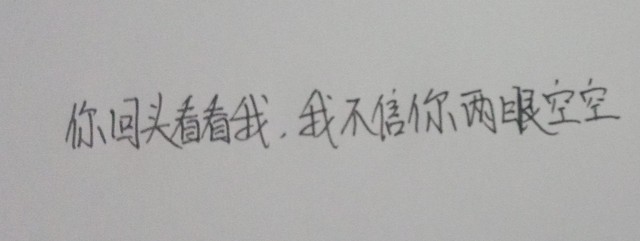 你回头看看我，我不信你两眼空空